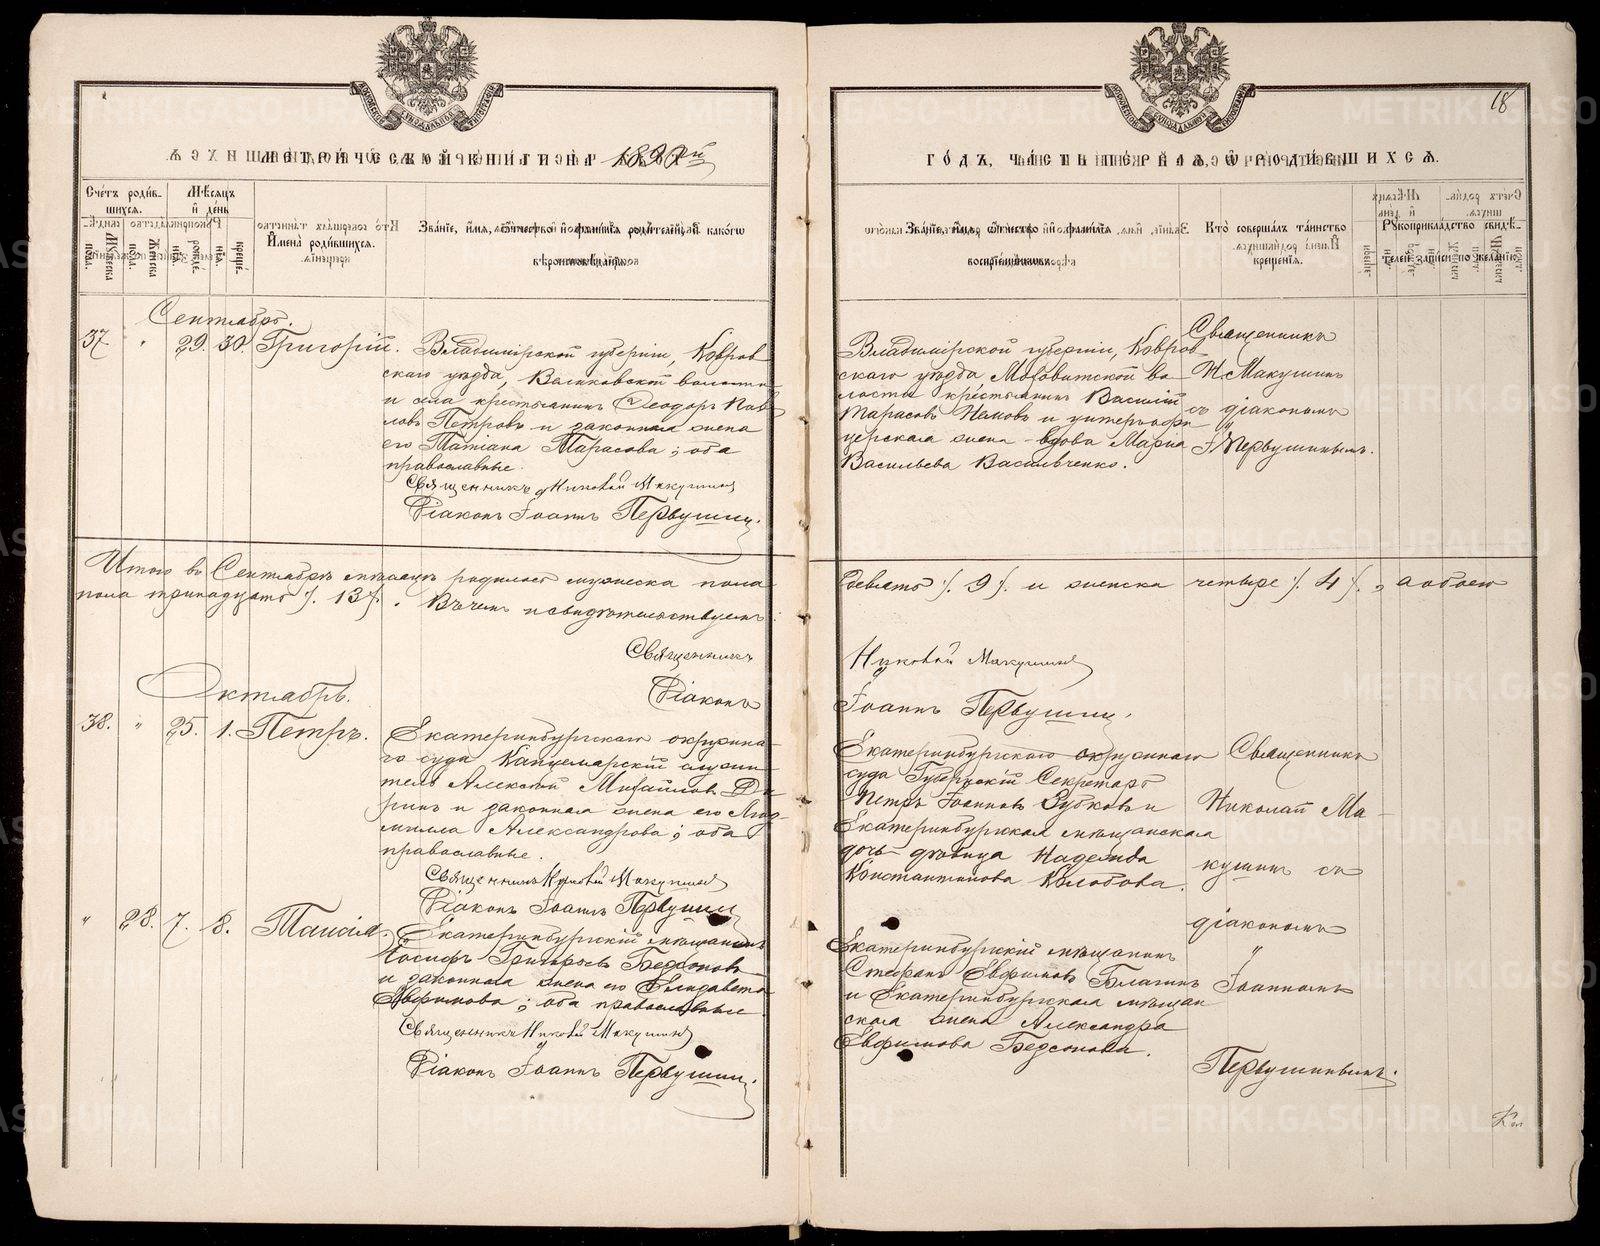 МЕТРИЧЕСКОЙ КНИГИ НА 1887й
ГОДЪ, ЧАСТЬ ПЕРВАЯ, О РОДИВШИХСЯ.
18
Счетъ родив-
шихся.
Мѣсяцъ
и день
Мужеска
пола.
Женска
пола.
рожде-
нія.
креще-
нія.
Имена родившихся.
Званіе, имя, отчество и фамилія родителей, и какого
вѣроисповѣданія.
Званіе, имя, отчество и фамилія
воспріемниковъ.
Кто совершалъ таинство
крещенія.
Рукоприкладство свидѣ-
телей записи по желанію.
Сентябрь.
37. " 29. 30. Григорій.
Владимірской губерніи, Ковров
скаго уѣзда, Великовской волости
и села крестьянинъ Ѳеодоръ Пав
ловъ Петровъ и законная жена
его Татіана Тарасова; оба
православные.
Священникъ Николай Макушинъ
Діаконъ Іоаннъ Первушинъ.
Владимірской губерніи, Ковров-
скаго уѣзда во-
лости крестьянинъ Василій
Тарасовъ и унтеръ-офи-
церская жена - вдова Марія
Васильева Васильченко.
Священникъ
Н. Макушинъ
съ діакономъ
І. Первушинымъ.
Итого въ Сентябрѣ мѣсяцѣ родилось мужеска пола
девять /. 9 /. и женска четыре /. 4 /., а обоего
пола тринадцать /. 13 /. Въ чемъ и свидѣтельствуемъ:
Священникъ
Николай Макушинъ
Діаконъ
Іоаннъ Первушинъ.
Октябрь.
38. " 25. 1. Петръ.
Екатеринбургскаго окружна-
го суда Канцелярскій служи
тель Алексѣй Михайловъ
и законная жена его Люд
милла Александрова; оба
православные.
Священникъ Николай Макушинъ
Діаконъ Іоаннъ Первушинъ
Екатеринбургскаго окружнаго
суда Губернскій Секретарь
Петръ Іоанновъ Зубковъ и
Екатеринбургская мѣщанская
дочь - дѣвица Надежда
Константинова Колобова.
Священникъ
Николай Ма-
кушинъ съ
діакономъ
Іоанномъ
Первушинымъ.
" 28. 7. 8. Таисія.
Екатеринбургскій мѣщанинъ
Іосифъ Григорьевъ Безсоновъ
и законная жена его Елизавета
Евфимова; оба православные.
Священникъ Николай Макушинъ
Діаконъ Іоаннъ Первушинъ.
Екатеринбургскій мѣщанинъ
Стефанъ Евфимовъ
и Екатеринбургская мѣщан
ская жена Александра
Евфимова Безсонова.
METRIKI.GASO-URAL.RU